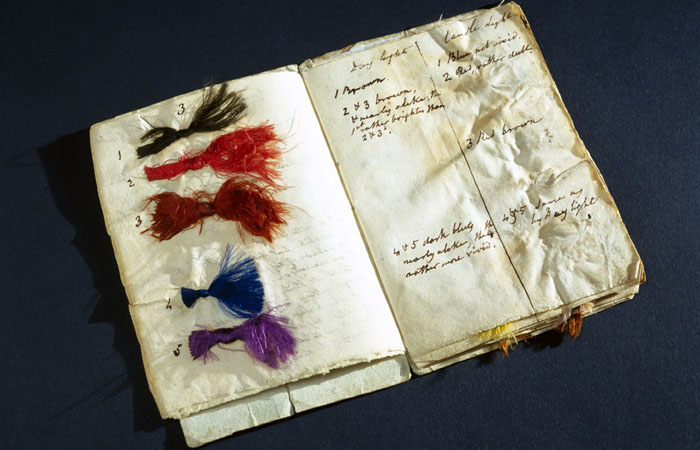 3
1
2
3
4
5
Day light
1 Brown.
2 & 3 brown,
& nearly alike, the
1st rather brighter than
2 & 3.
4 & 5 dark blue, &
nearly alike, this
rather more vivid.
Candle Light
1 Blue, not vivid
2 Red, rather dark
3 Red brown
4 & 5 same as
by Day light